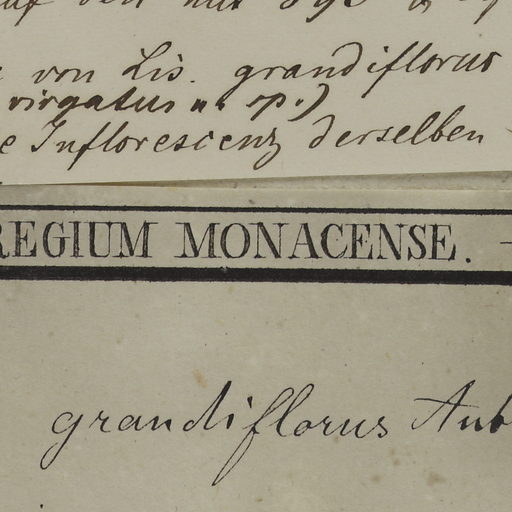 von Lis. grandiflorus
virgatus u. sp.)
Inflorescienz derselben
REGIUM MONACENSE.
grandiflorus Aub